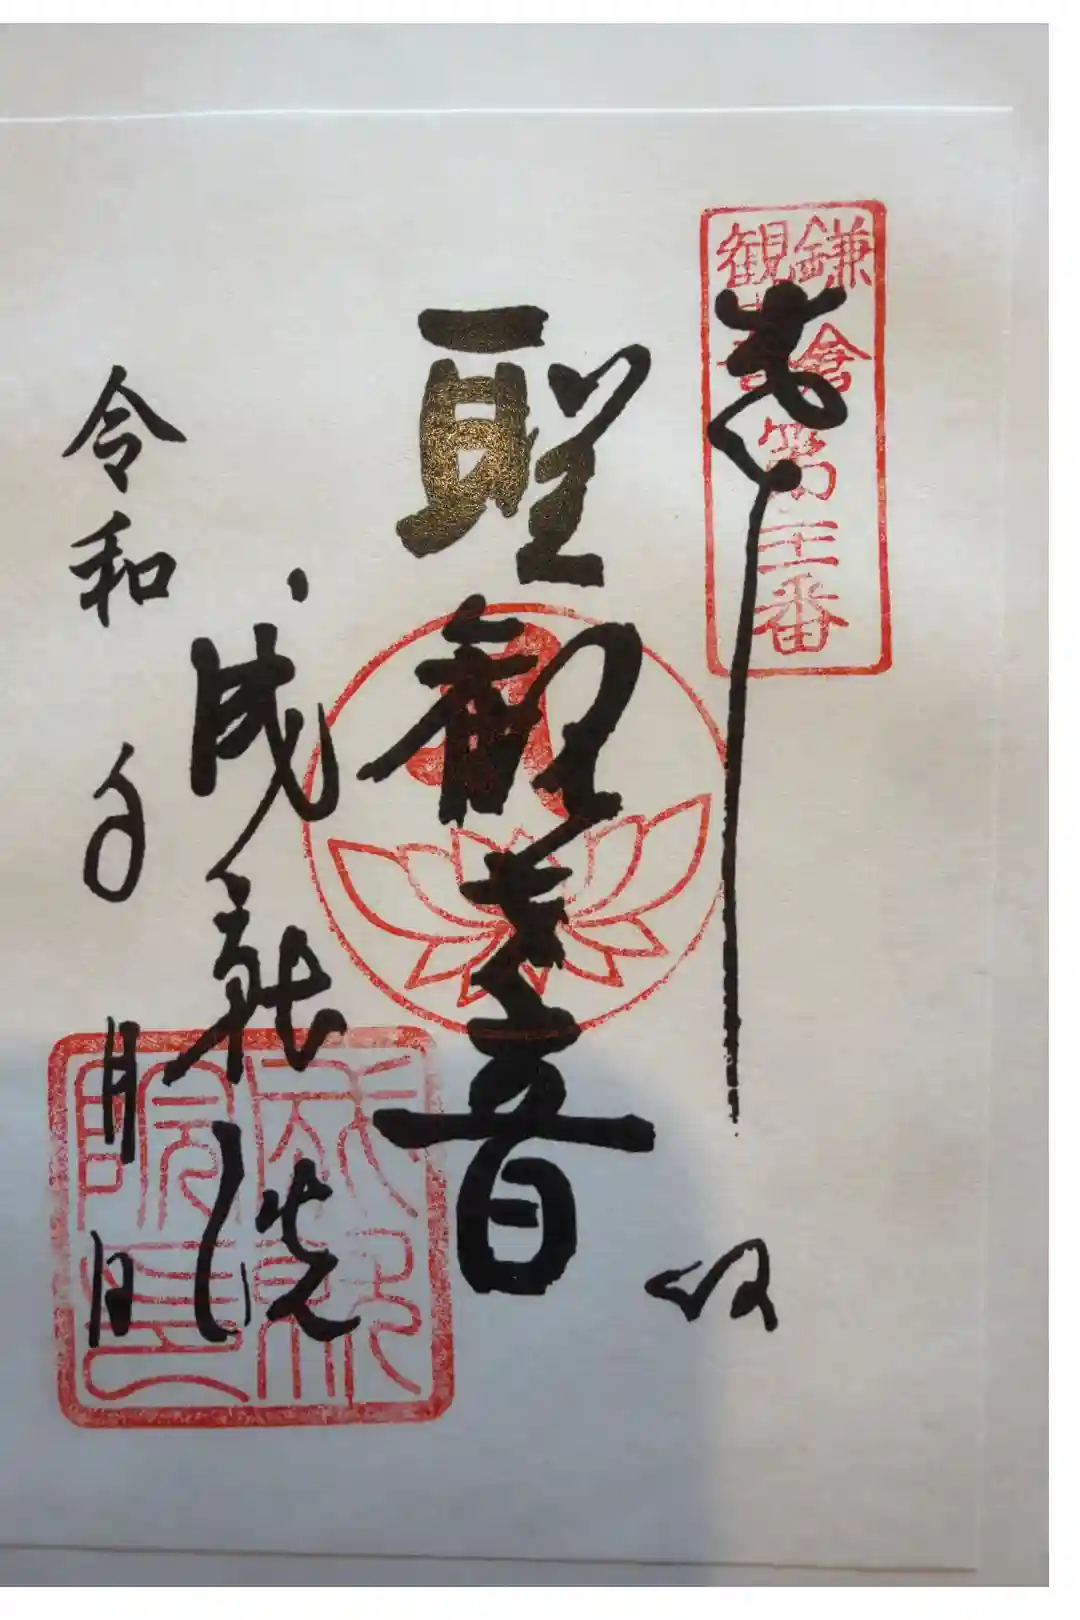 鎌倉
観音
第二十一番
奉拝
聖観世音
成就院
令和 年 月 日
成就
院印